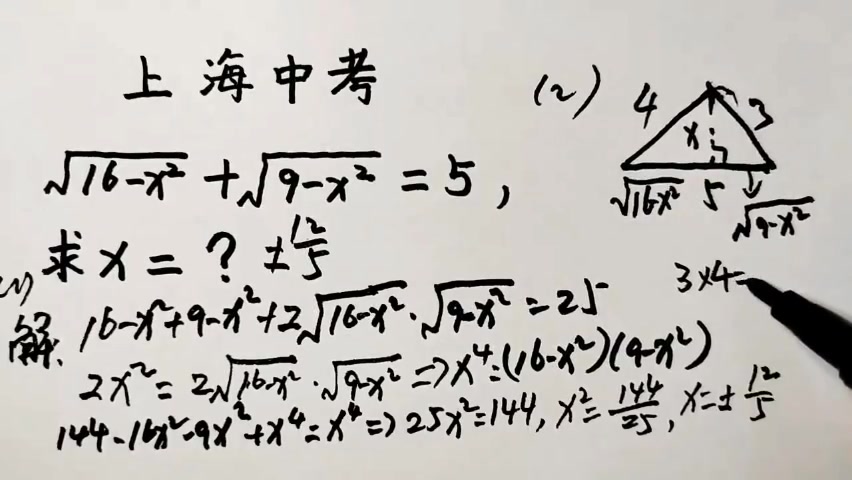 上海中考
√(16-x²) + √(9-x²) = 5,
求 x = ? ± 12/5
(1)
解: 16-x²+9-x²+2√(16-x²)·√(9-x²) = 25
2x² = 2√(16-x²)·√(9-x²) => x⁴=(16-x²)(9-x²)
144-16x²-9x²+x⁴=x⁴ => 25x²=144, x²=144/25, x=±12/5
(2)
4 3
x
√(16-x²) 5 √(9-x²)
3×4=